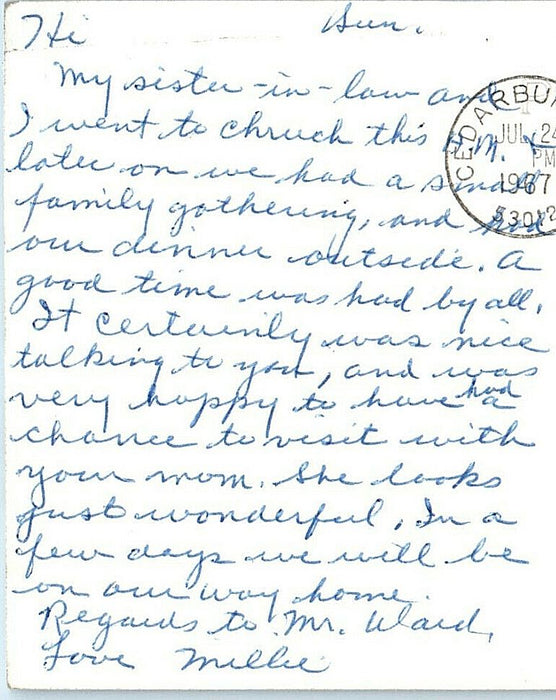 Hi Sun.
My sister-in-law and
I went to chruch this P.M. &
later on we had a small
family gathering, and had
our dinner outside. A
good time was had by all.
It certainly was nice
talking to you, and was
very happy to have had a
chance to visit with
your mom. She looks
just wonderful. In a
few days we will be
on our way home.
Regards to Mr. Ward,
Love Millie
CEDARBU
JUL 24
PM
1967
53012